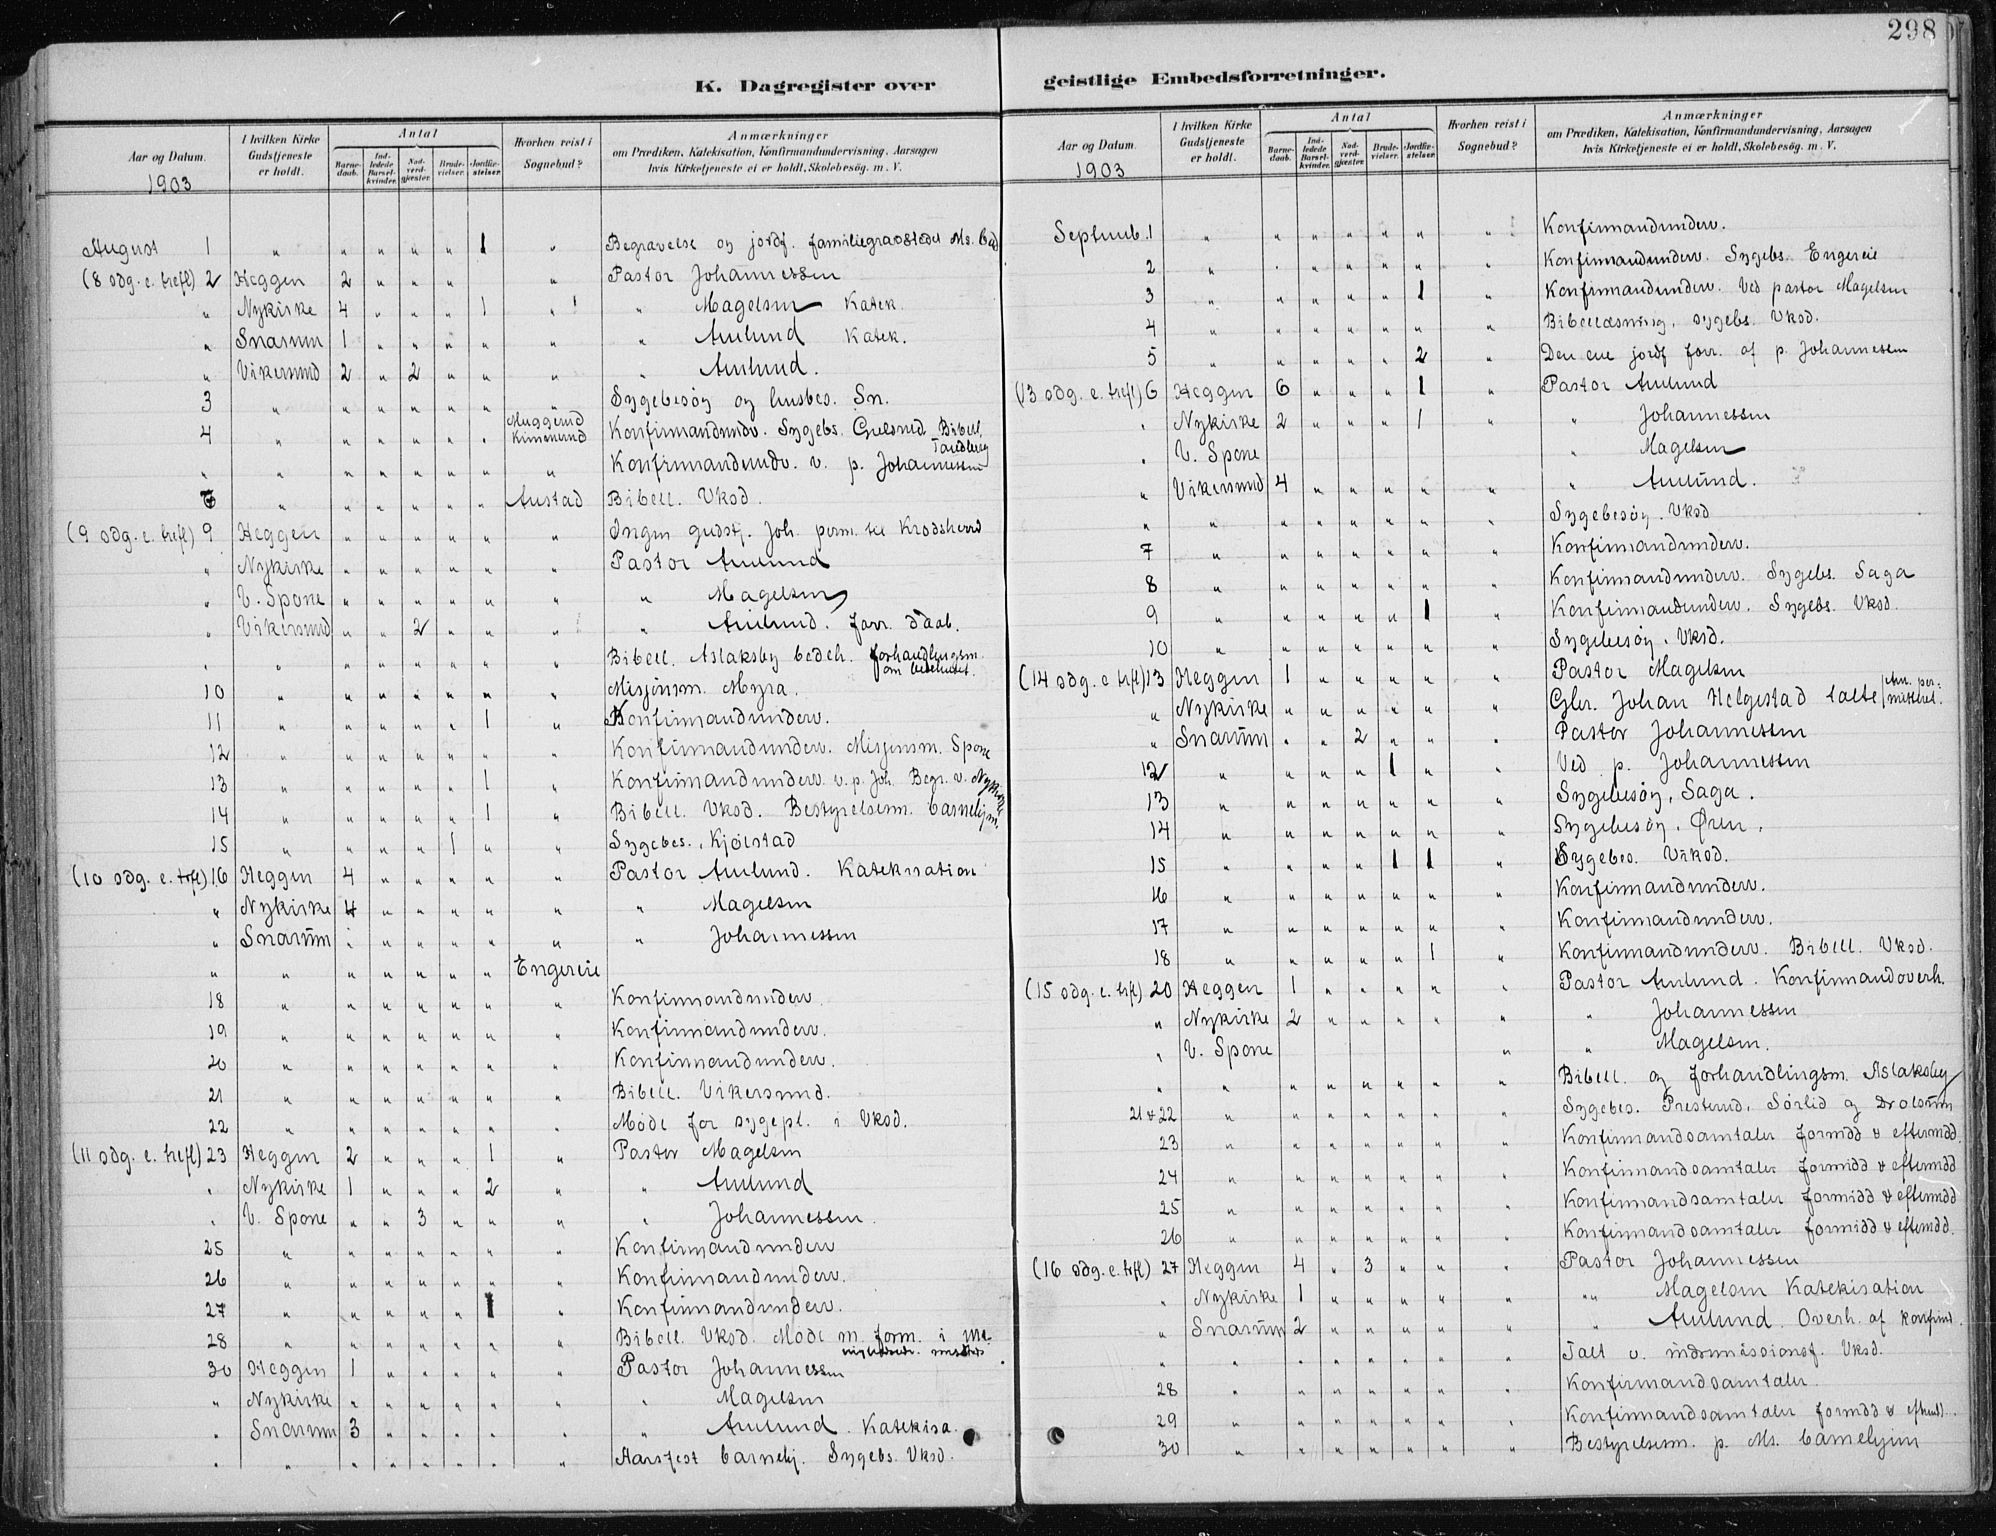 298
K. Dagregister over geistlige Embedsforretninger.
Aar og Datum. | I hvilken Kirke Gudstjeneste er holdt. | Antal | Barnedaab. | Indledede Barselkvinder. | Nadverdgjæster. | Brudevielser. | Jordfæstelser. | Hvorhen reist i Sognebud? | Anmærkninger om Prædiken, Katekisation, Konfirmandundervisning, Aarsagen hvis Kirketjeneste ei er holdt, Skolebesøg. m. V.
1903
August 1 " " " " " 1 " Begravelse og jordf. familiegravstedet Ms. Bad
(8 sdg. e. trefl) 2 Heggen 2 " " " " Pastor Johannessen
" Nykirke 4 " " " 1 " " Magelsen Katek.
" Snarum 1 " " " " " " Amlund Katek.
" Vikersund 2 " 2 " " " " Amlund.
3 " " " " " " " Sygebesøg og husbes. Sn.
4 " " " " " " Muggerud Kimerud Konfirmandundv. Sygebs. Bibell.
" " " " " " " " Konfirmandundv. v. p. Johannessen
" " " " " " Austad Bibell. Vksd.
(9 sdg. e. trefl) 9 Heggen " " " " " " Ingen gudstj. Joh. perm. til Krodsherred
" Nykirke " " " " " " Pastor Amlund
" V. Spone " " " " " " " Magelsen
" Vikersund " " 2 " " " " Amlund. forr. daab.
" " " " " " " " Bibell. Aslaksby bedeh. forhandlingsm. om bedehuset.
10 " " " " " " " Misjonsm. Myra.
11 " " " " " 1 " Konfirmandunderv.
12 " " " " " " " Konfirmandunderv. Misjonsm. Spone
13 " " " " " 1 " Konfirmandunderv. v. p. Joh. Begr. v. Nykirke
14 " " " " " 1 " Bibell. Vksd. Bestyrelsesm. barnehjm.
15 " " " " 1 " " Sygebes. Kjølstad
(10 sdg. e. trefl) 16 Heggen 4 " " " " " Pastor Amlund. Katekisation
" Nykirke 4 " " " " " " Magelsen
" Snarum 1 " " " " " " Johannessen
" " " " " " " Engereie
18 " " " " " " " Konfirmandunderv.
19 " " " " " " " Konfirmandunderv.
20 " " " " " " " Konfirmandunderv.
21 " " " " " " " Bibell. Vikersund.
22 " " " " " " " Møde for sygepl. i Vksd.
(11 sdg. e. trefl) 23 Heggen 2 " " " 1 " Pastor Magelsen
" Nykirke 1 " " " 2 " " Amlund
" V. Spone " " 3 " " " " Johannessen.
25 " " " " " " " Konfirmandunderv
26 " " " " " " " Konfirmandunderv.
27 " " " " " 1 " Konfirmandunderv.
28 " " " " " " " Bibell. Vksd. Møde m. form. i
30 Heggen 1 " " " " " Pastor Johannessen
" Nykirke " " " " " " " Magelsen
" Snarum 3 " " " " " " Amlund. Katekisa.
" " " " " " " " Aarsfest barnehj. Sygebs. Vksd.
Aar og Datum. | I hvilken Kirke Gudstjeneste er holdt. | Antal | Barnedaab. | Indledede Barselkvinder. | Nadverdgjæster. | Brudevielser. | Jordfæstelser. | Hvorhen reist i Sognebud? | Anmærkninger om Prædiken, Katekisation, Konfirmandundervisning, Aarsagen hvis Kirketjeneste ei er holdt, Skolebesøg. m. V.
1903
Septemb. 1 " " " " " " " Konfirmandunderv.
2 " " " " " " " Konfirmandunderv. Sygebs. Engereie
3 " " " " " 1 " Konfirmandunderv. Ved pastor Magelsen
4 " " " " " " " Bibellæsning, sygebs. Vksd.
5 " " " " " 2 " Den ene jordf forr. af p. Johannessen
(13 sdg. e. trefl) 6 Heggen 6 " " " 1 " Pastor Amlund
" Nykirke 2 " " " 1 " " Johannessen
" V. Spone " Magelsen
" Vikersund 4 " " " " " " Amlund.
" " " " " " " " Sygebesøg. Vksd
7 " " " " " " " Konfirmandunderv.
8 " " " " " " " Konfirmandunderv. Sygebs. Saga
9 " " " " " 1 " Konfirmandunderv. Sygebs. Vksd.
10 " " " " " " " Sygebesøg. Vksd.
(14 sdg. e trefl) 13 Heggen 1 " " " " " Pastor Magelsen
" Nykirke " " " " " " Johan Helgestad talte (Am. permitteret.
" Snarum " " 2 " " " Pastor Johannessen
12 " " " " 1 " " Ved p. Johannessen
13 " " " " " " " Sygebesøg, Saga.
14 " " " " " " " Sygebesøg. Øren.
15 " " " " 1 1 " Sygebes. Viksd.
16 " " " " " " " Konfirmandunderv.
17 " " " " " " " Konfirmandunderv.
18 " " " " " 1 " Konfirmandunderv. Bibell. Vksd.
(15 sdg. e. trefl) 20 Heggen 1 " " " " " Pastor Amlund. Konfirmandoverh.
" Nykirke 2 " " " " " " Johannessen
" V. Spone " " Magelsen.
" " " " " " " " Bibell. og forhandlingsm. Aslaksby
21 & 22 " " " " " " " Sygebes. Presterud, Sørlid og Drolsum
23 " " " " " " " Konfirmandsamtaler formdd & eftermdd.
24 " " " " " " " Konfirmandsamtaler formidd & eftermdd
25 " " " " " " " Konfirmandsamtaler formidd & eftermdd
26 " " " " " " " Konfirmandsamtaler formidd & eftermdd.
(16 sdg. e. trefl) 27 Heggen 4 " 3 " " " Pastor Johannessen
" Nykirke 1 " " " " " " Magelsen Katekisation
" Snarum 2 " " " " " " Amlund. Overh. af konfirmd.
" " " " " " " " Talt v. indremissionsf. Vksd.
28 " " " " " " " Konfirmandsamtaler.
29 " " " " " " " Konfirmandsamtaler formdd & eftermd.
30 " " " " " " " Bestyrelsesm. p. Ms. barnehjem